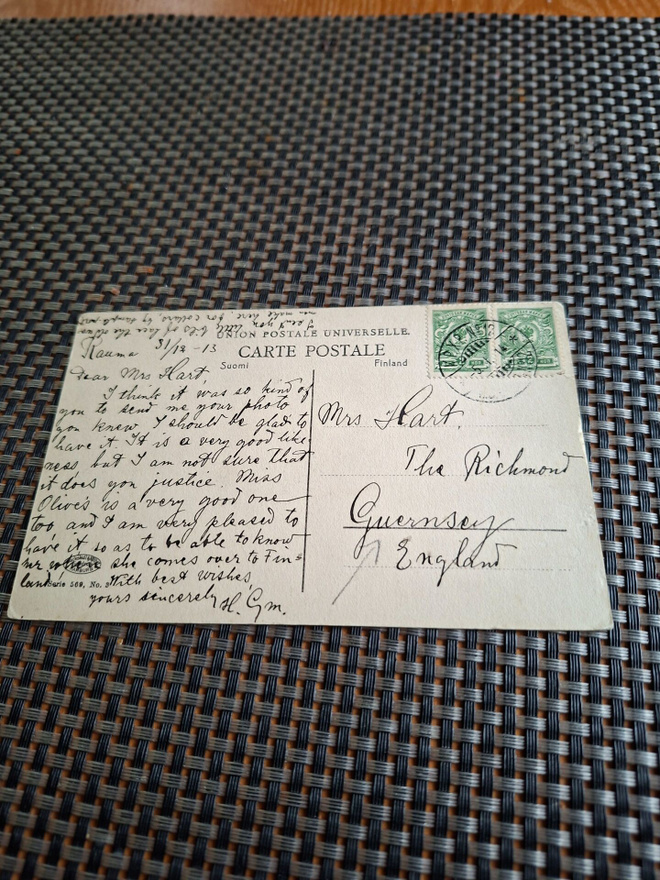 I send you little bits of lace the
make here. for collars. by
UNION POSTALE UNIVERSELLE.
CARTE POSTALE
Suomi
Finland
Rauma 31/12-13
Dear Mrs Hart,
I think it was so kind of
you to send me your photo
you knew I should be glad to
have it. It is a very good like
ness, but I am not sure that
it does you justice. Miss
Olive's is a very good one
too and I am very pleased to
have it so as to be able to know
her when she comes over to Fin=
land. With best wishes,
Serie 569, No.
yours sincerely H. Gym.
Mrs Hart.
The Richmond
Guernsey
England